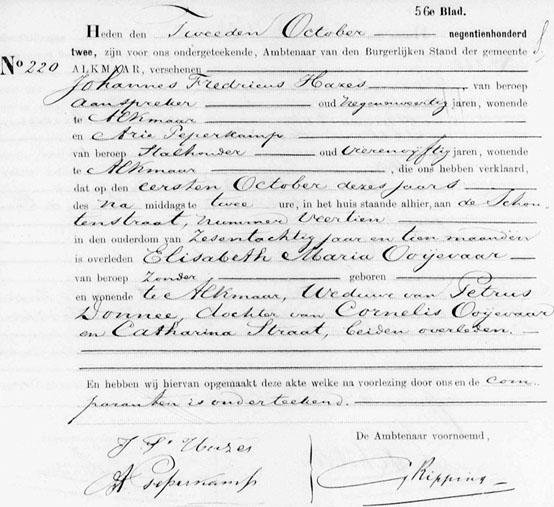 56e Blad.
Heden den Tweeden October negentienhonderd
twee, zijn voor ons ondergeteekende, Ambtenaar van den Burgerlijken Stand der gemeente
No 220 ALKMAAR, verschenen
Johannes Fredricus Hazes, van beroep
aanspreker oud negenenveertig jaren, wonende
te Alkmaar
en Arie Peperkamp
van beroep Stalhouder oud vierenvijftig jaren, wonende
te Alkmaar, die ons hebben verklaard,
dat op den eersten October dezes jaars
des na middags te twee ure, in het huis staande alhier, aan de Schou-
tenstraat, nummer veertien
in den ouderdom van zesentachtig jaar en tien maanden
is overleden Elisabeth Maria Ooijevaar
van beroep zonder geboren
en wonende te Alkmaar, Weduwe van Petrus
Donnee, dochter van Cornelis Ooijevaar
en Catharina Straat, beiden overleden.
En hebben wij hiervan opgemaakt deze akte welke na voorlezing door ons en de com-
paranten is onderteekend.
De Ambtenaar voornoemd,
J F Hazes
A Peperkamp
GKipping